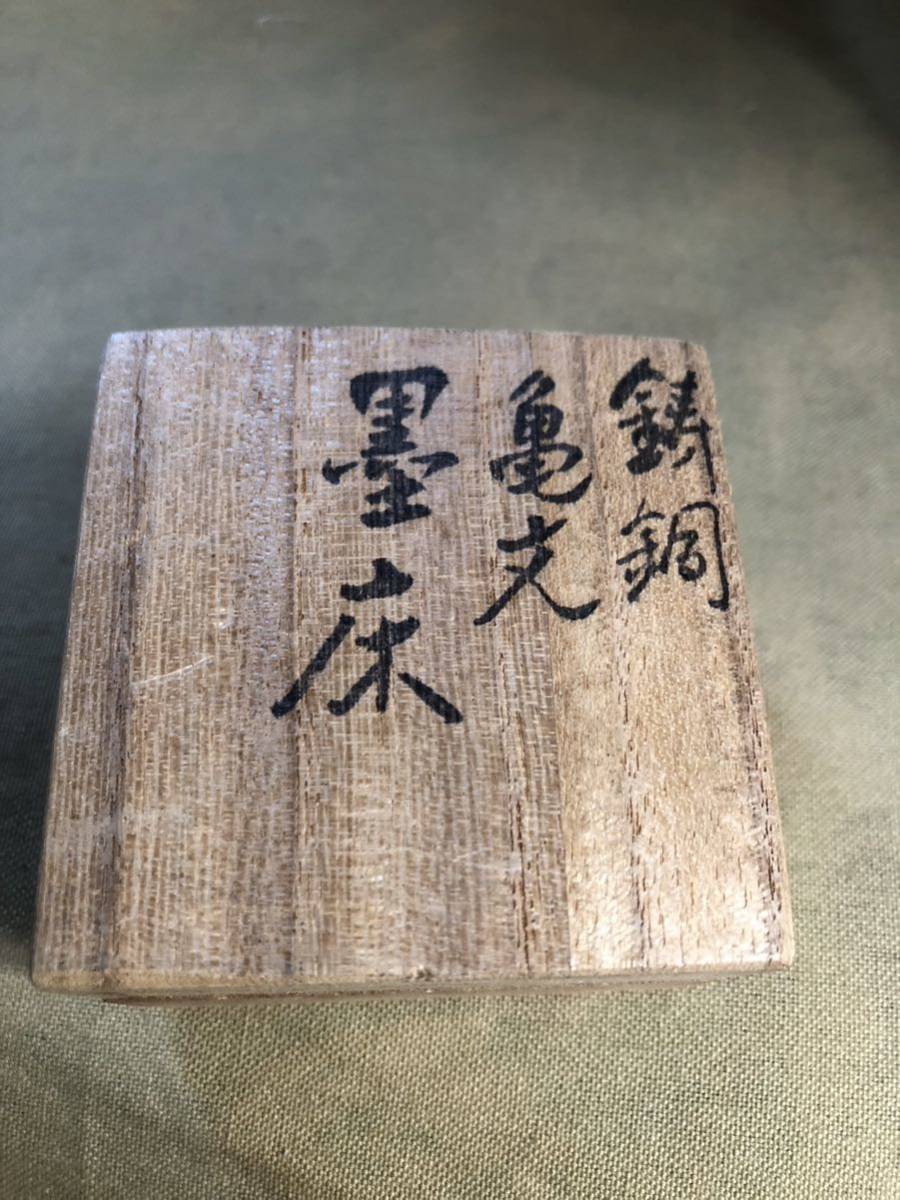 鋳銅
亀文
墨床